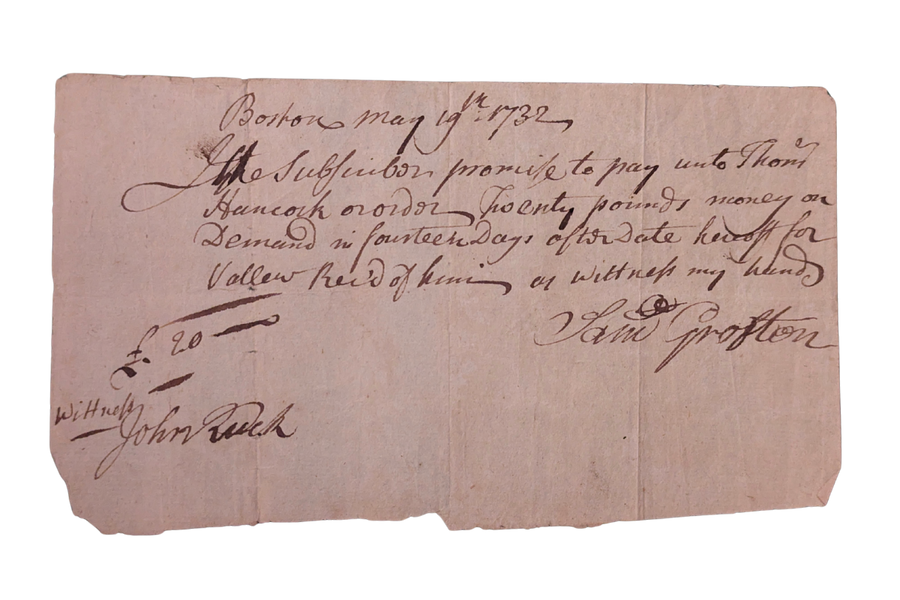 Boston may 19th 1732
I the Subscriber promise to pay unto Thoms
Hancock or order Twenty pounds money on
Demand in fourteen Days after Date hereoff for
Vallew Rec'd of him as wittness my hand
£ 20
Saml Grofton
Wittness
John Ruck